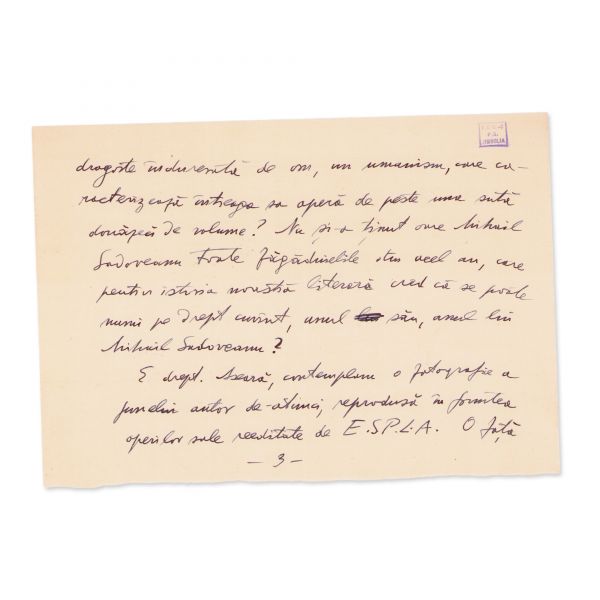 P.S.
JIMBOLIA
dragoste îndurerată de om, un umanism, care ca-
racterizează întreaga sa operă de peste una sută
douăzeci de volume? Nu și-a ținut oare Mihail
Sadoveanu toate făgăduelile din acel an, care
pentru istoria noastră literară cred că se poate
numi pe drept cuvînt, anul său, anul lui
Mihail Sadoveanu?
E drept. Aseară, contemplam o fotografie a
junelui autor de-atunci, reprodusă în fruntea
operilor sale reeditate de E.S.P.L.A. O față
— 3 —